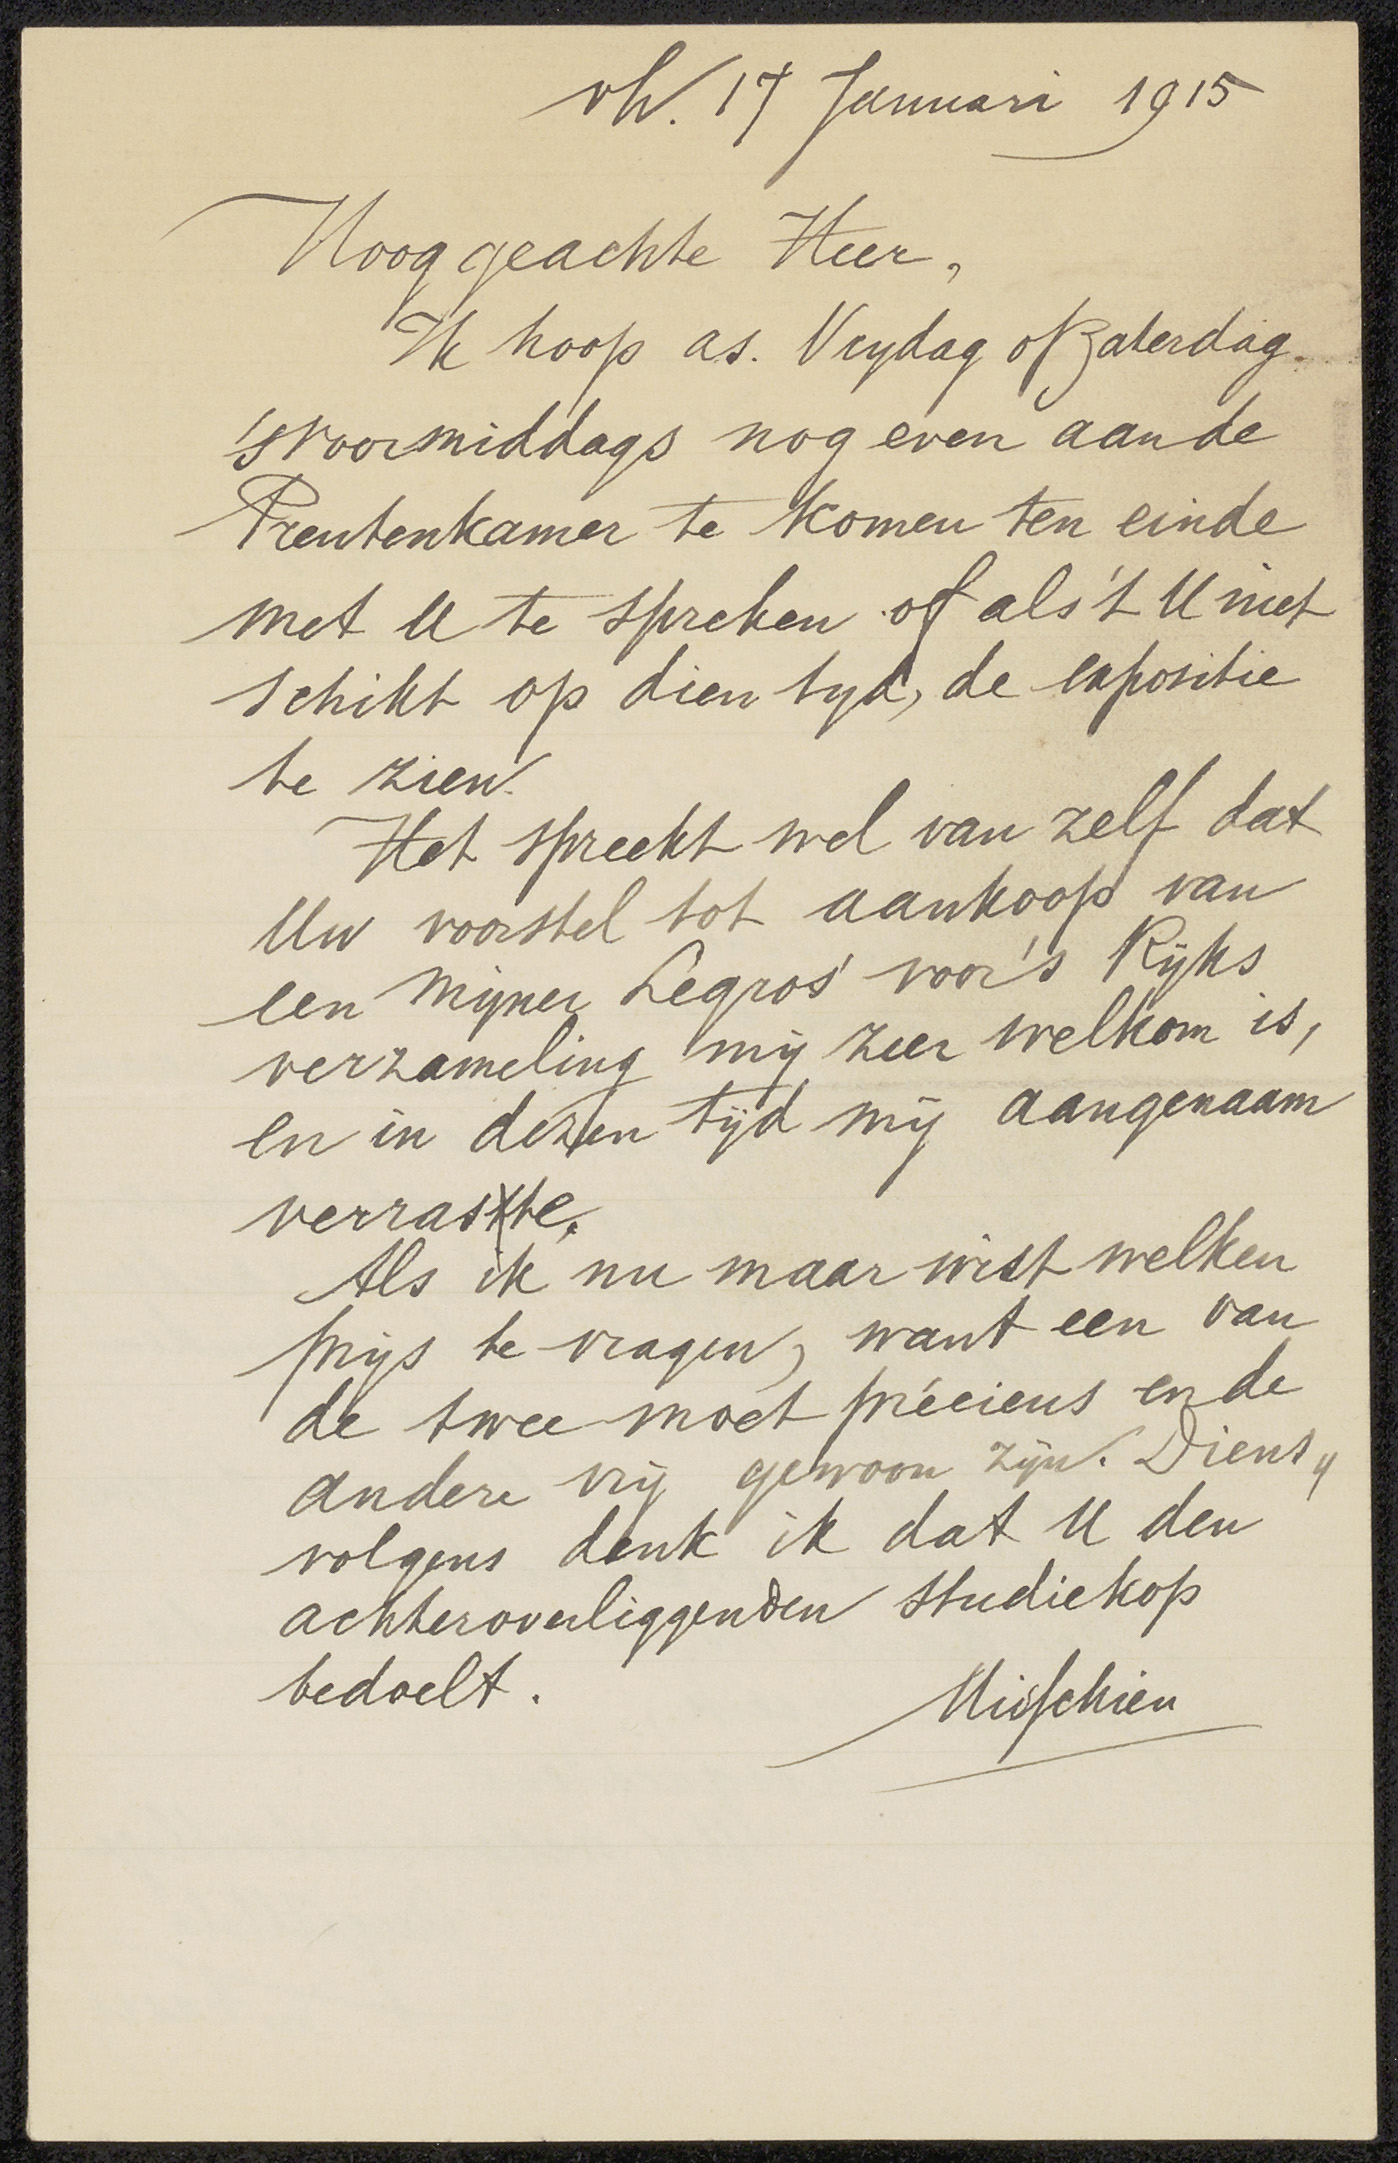 vh. 17 Januari 1915
Hooggeachte Heer,
Ik hoop as. Vrydag of Zaterdag
's Voormiddags nog even aan de
Prentenkamer te komen ten einde
met U te spreken of als 't U niet
schikt op dien tyd, de expositie
te zien.
Het spreekt wel van zelf dat
Uw voorstel tot aankoop van
een mijner Legros' voor 's Rijks
verzameling mij zeer welkom is,
en in dezen tijd mij aangenaam
verraste.
Als ik nu maar wist welken
prijs te vragen, want een van
de twee moet précieus en de
andere vrij gewoon zijn. Diens„
volgens denk ik dat U den
achteroverliggenden studiekop
bedoelt.
Misschien